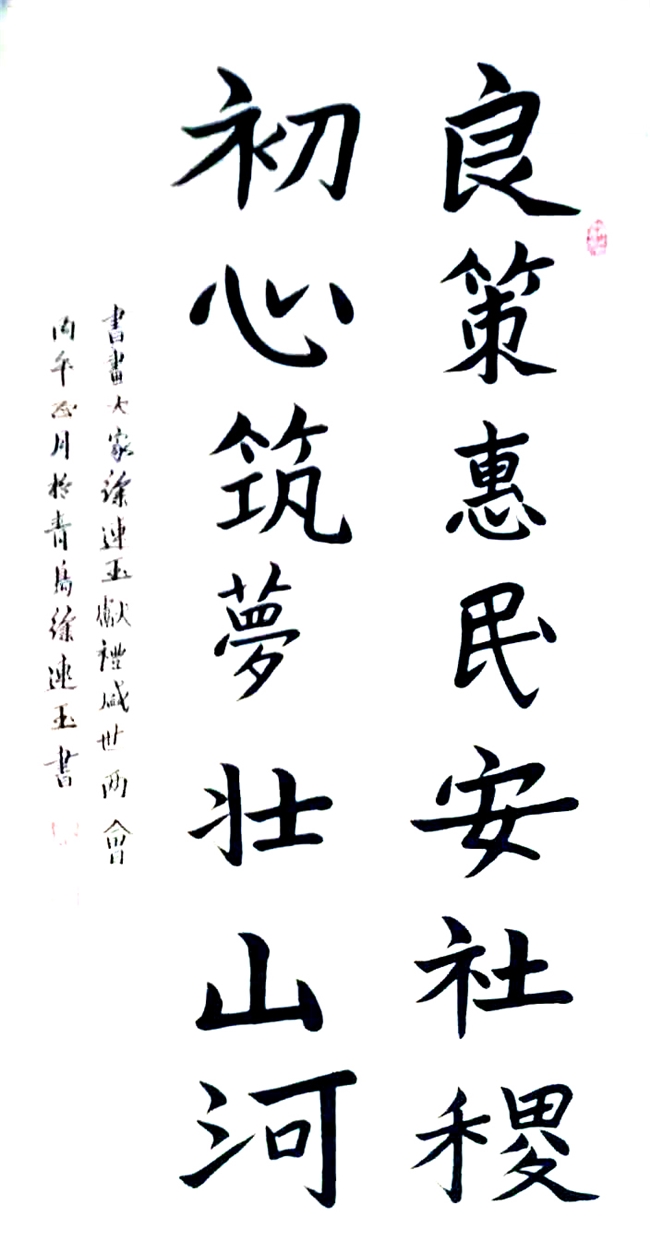 良策惠民安社稷
初心筑夢壮山河
書畫大家徐連玉獻禮盛世两會
丙午正月於青島徐連玉書